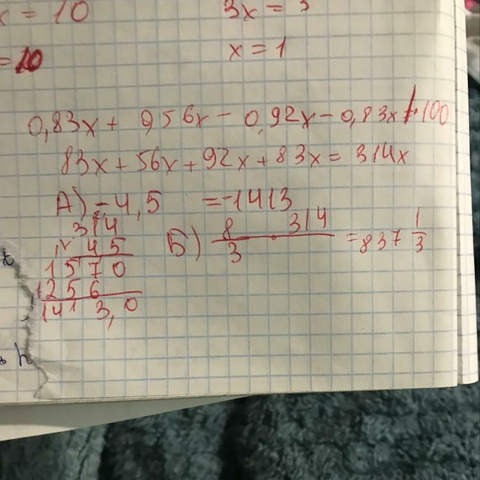 x = 10
3x = 3
= 10
x = 1
0,83x + 0,56x - 0,92x - 0,83x | · 100
83x + 56x + 92x + 83x = 314x
А) -4,5 = -1413
314
45
1570
1256
1413,0
Б) 8 · 314 / 3 = 837 1/3